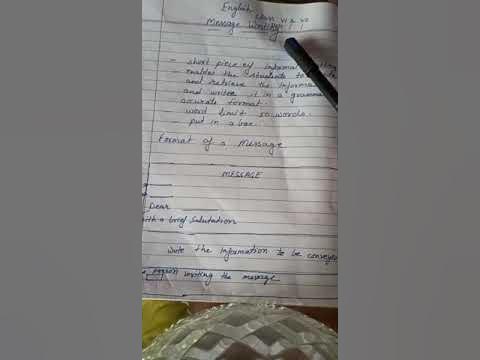 English
Class VI & VII
Message Writing
- short piece of informal
- enables the students to
and retrieve the informa
and writes it in a gramma
accurate format.
- word limit 50 words.
- put in a box.
Format of a Message
MESSAGE
Dear
with a brief salutation
Write the information to be convey
person writing the message